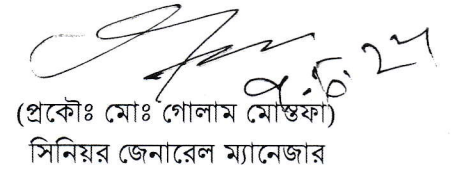 (প্রকৌঃ মোঃ গোলাম মোস্তফা)
সিনিয়র জেনারেল ম্যানেজার